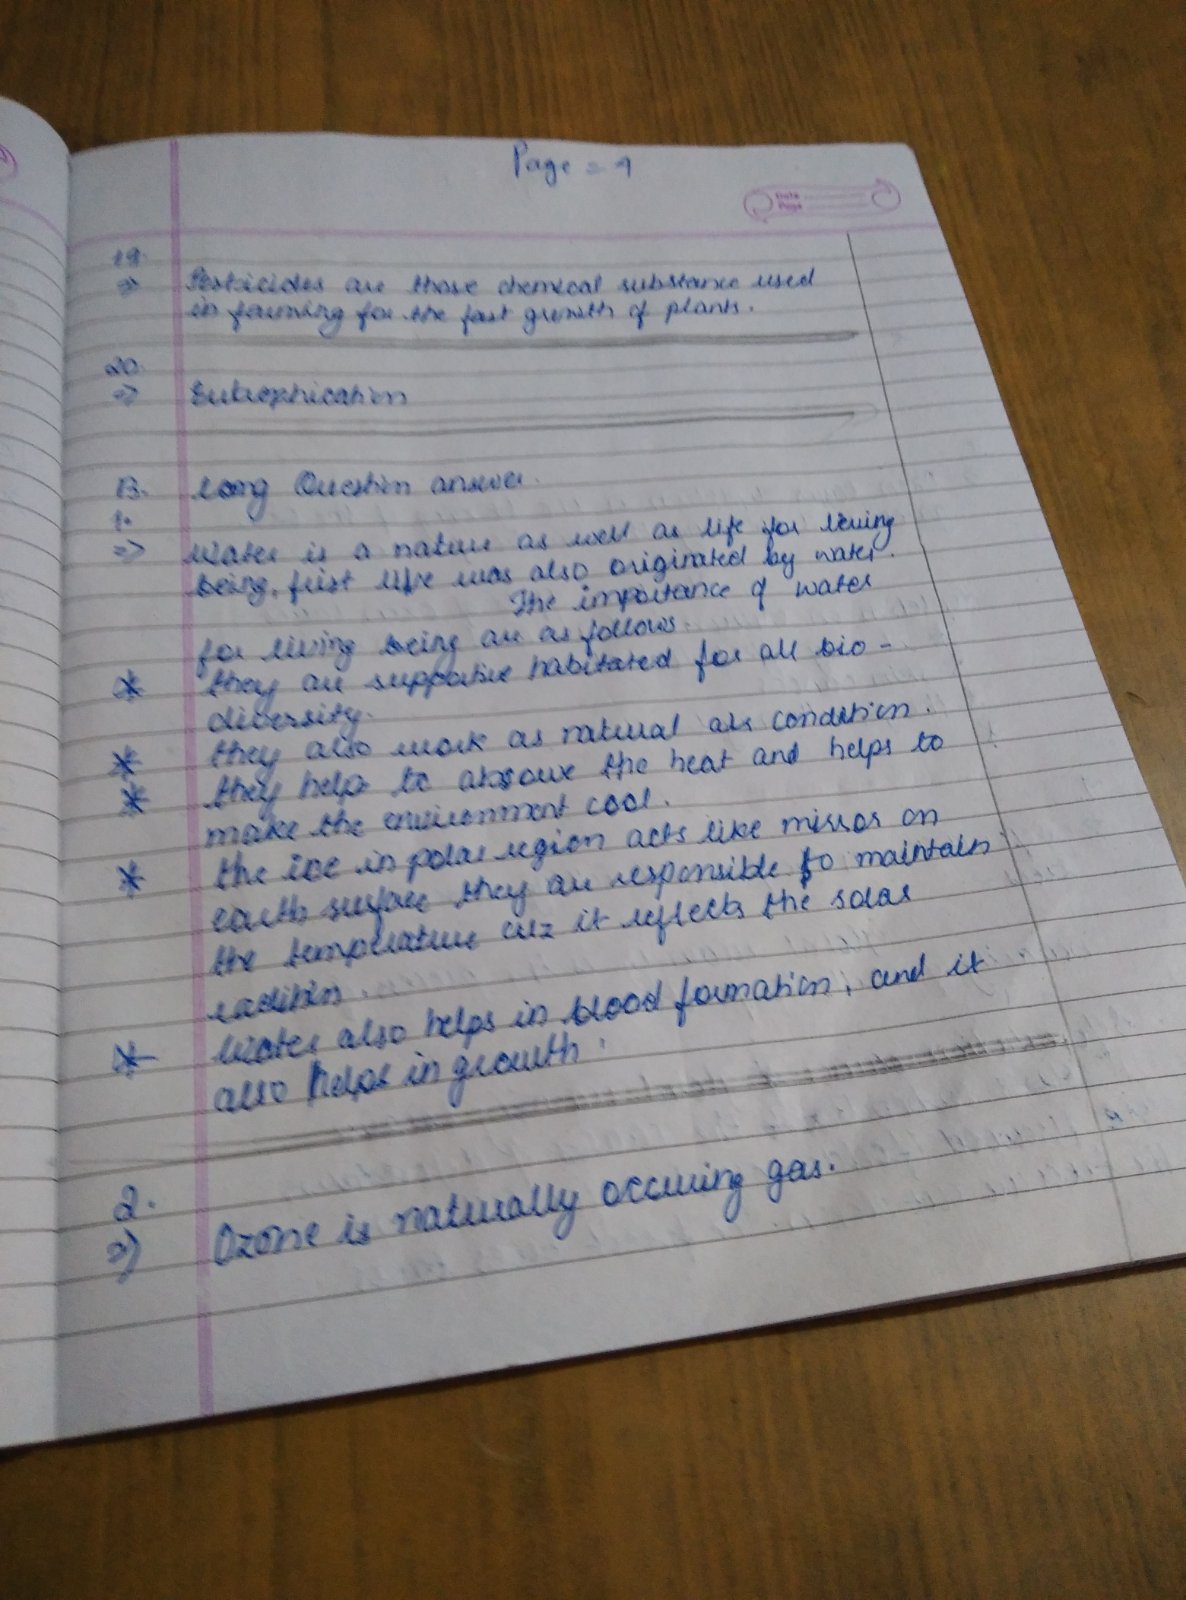 Page = 1
Date
Page
19.
=> Pesticides are those chemical substance used
in farming for the fast growth of plants.
20.
=> Eutrophication
B. Long Question answer.
1.
=> Water is a nature as well as life for living
being, first life was also originated by water.
The importance of water
for living being are as follows.
* they are supportive habitated for all bio-
diversity.
* they also work as natural air condition.
* they help to absowe the heat and helps to
make the environment cool.
* the ice in polar region acts like mirror on
earth surface they are responsible to maintain
the temperature cuz it reflects the solar
radition.
* Water also helps in blood formation, and it
also helps in growth.
2.
=> Ozone is naturally occuring gas.